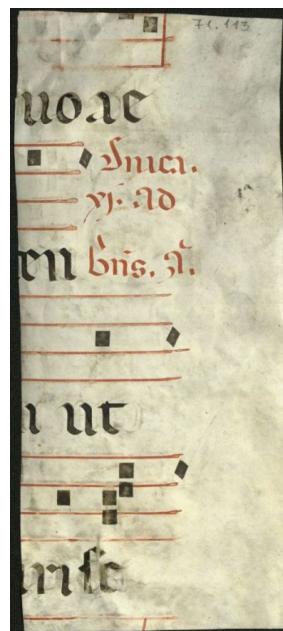 71.113
uo.ae
Dnica.
xj. ad
en bn̄s. añ.
i ut
urise